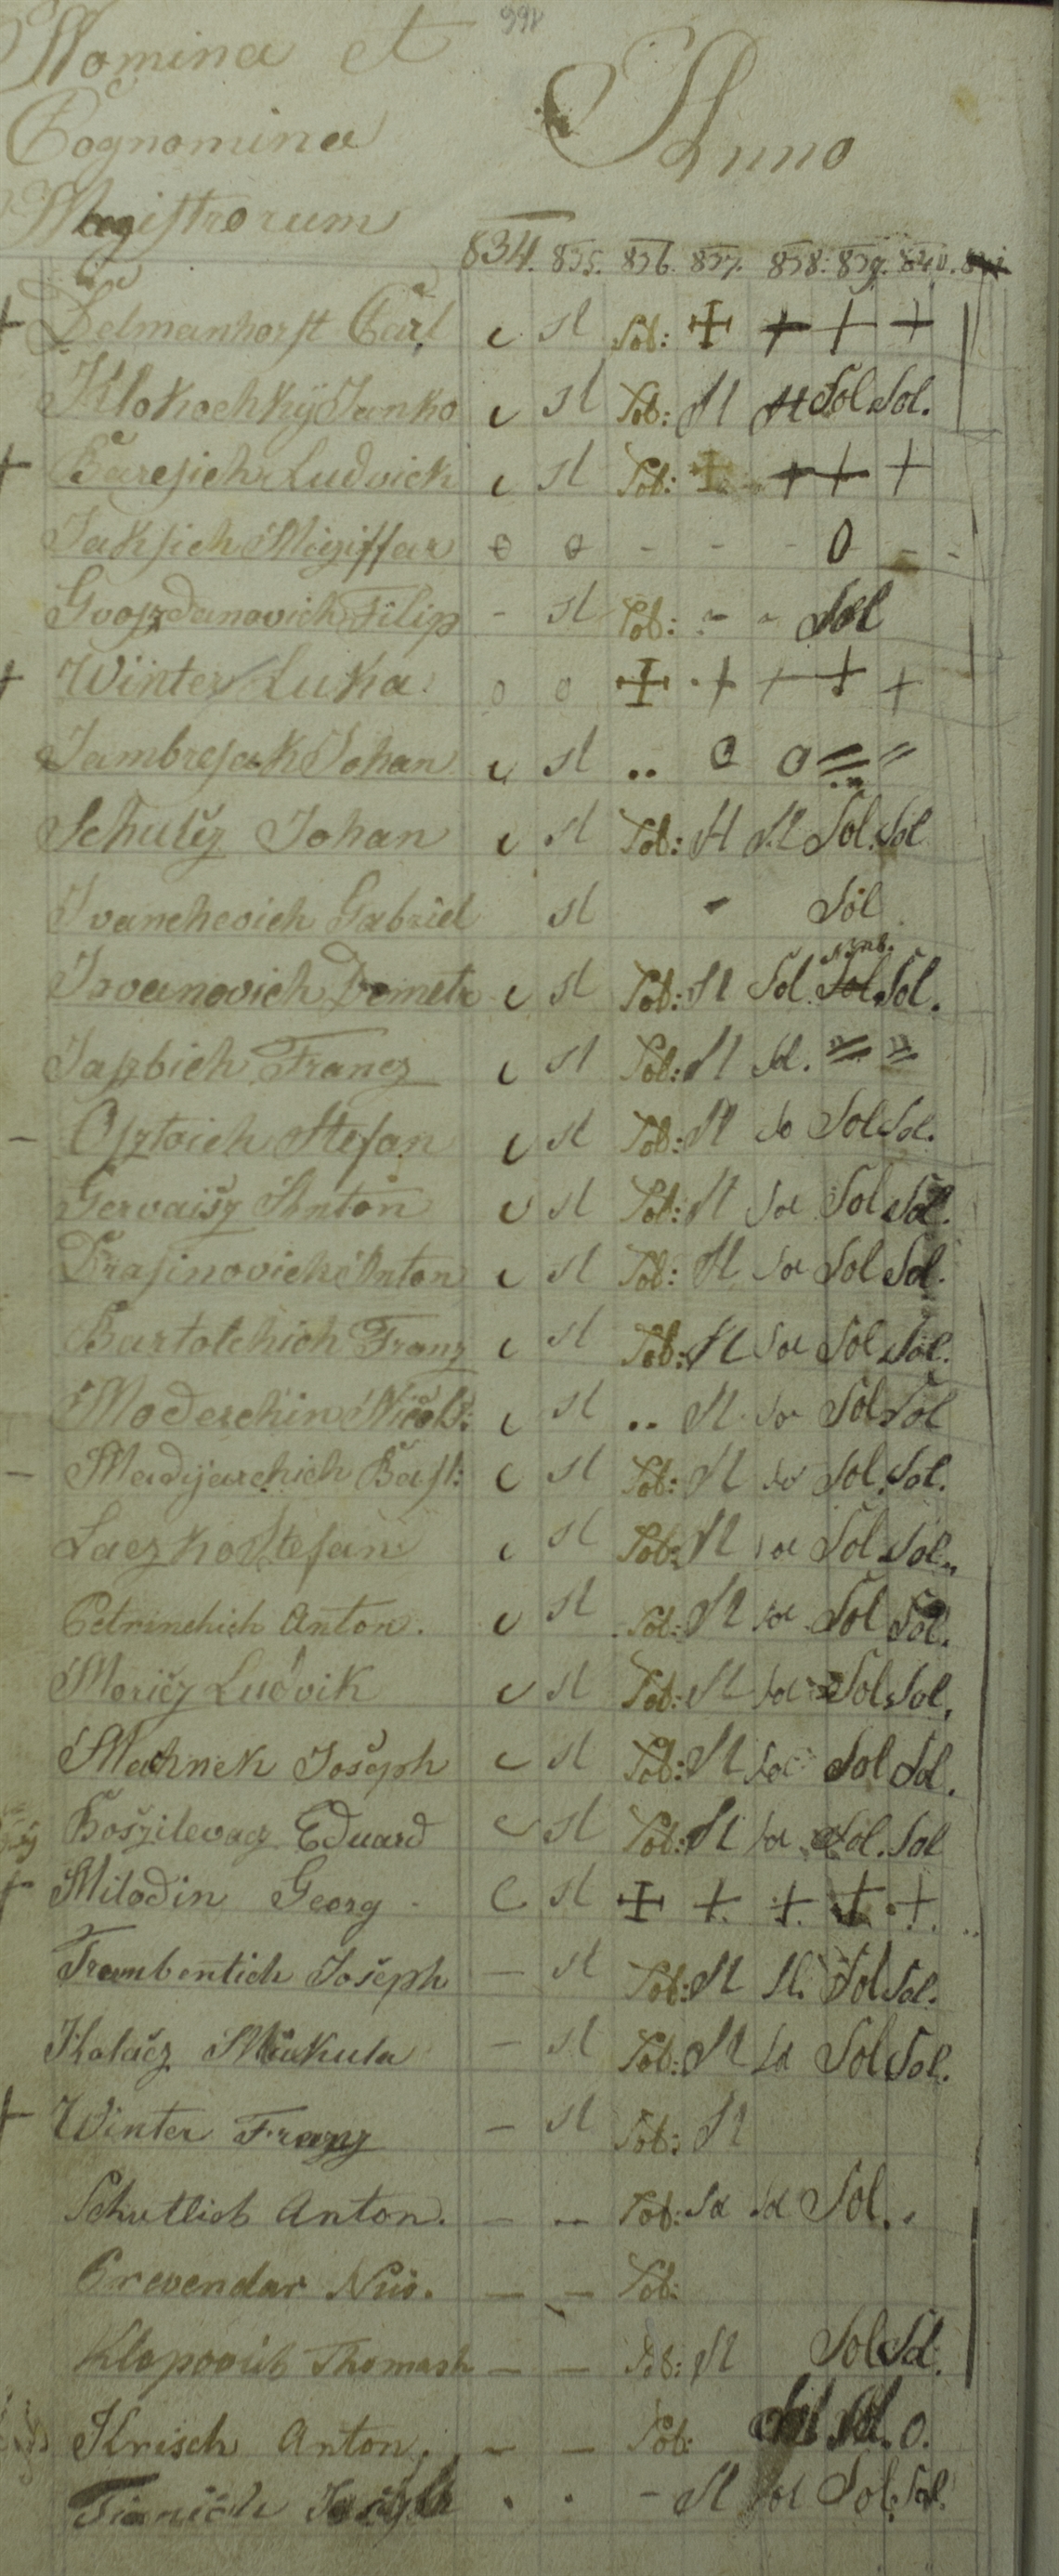 166
Nomina et
Cognomina Anno
Magistrorum
834. 835. 836. 837. 838. 839. 840.
+ Delmanhorst Carl c st Sol: + + + +
Klokochky Janko c st Sol: st st Sol Sol.
+ Baresich Ludvick c st Sol: + + + +
Jaksich o o - - - 0 - -
Gvozdanovich Filip - st Sol: - - Sol
+ Winter Luka o o + + + + +
Jambresak Johan c st .. 0 0 = =
Schulcz Johan c st Sol: st st Sol. Sol
Ivanchevich Gabriel st - Sol
Jovanovich Demetr c st Sol: st Sol Sol Sol.
Jazbich Francz c st Sol: st Sol. = =
- Oztoich Stefan c st Sol: st So Sol Sol.
Gervaisz Anton c st Sol: st Sol Sol Sol.
Anton c st Sol: st Sol Sol Sol.
Bartolchich Franz c st Sol: st Sol Sol Sol.
Moderchin c st .. st Sol Sol Sol
- Madyarchich Bast: c st Sol: st Sol Sol. Sol.
Laczko Stefan c st Sol: st Sol Sol Sol..
Petrinchich Anton. c st Sol: st Sol Sol Sol.
Moricz Ludvik c st Sol: st Sol Sol. Sol.
Machnek Joseph c st Sol: st Sol Sol Sol.
Boszilevacz Eduard c st Sol: st Sol Sol. Sol
+ Milodin Georg c st + + + + +
Trombentich Joseph - st Sol: st st. Sol Sol.
Kolacz Mikula - st Sol: st Sol Sol Sol.
+ Winter Franz - st Sol: st
Schutlich Anton. - - Sol: Sol Sol Sol.
Crevendar - - Sol:
Klopovich Thomash - - Sol: st Sol Sol.
Krisch Anton. - - Sol: Sol Sol. 0.
. . - st Sol Sol. Sol.